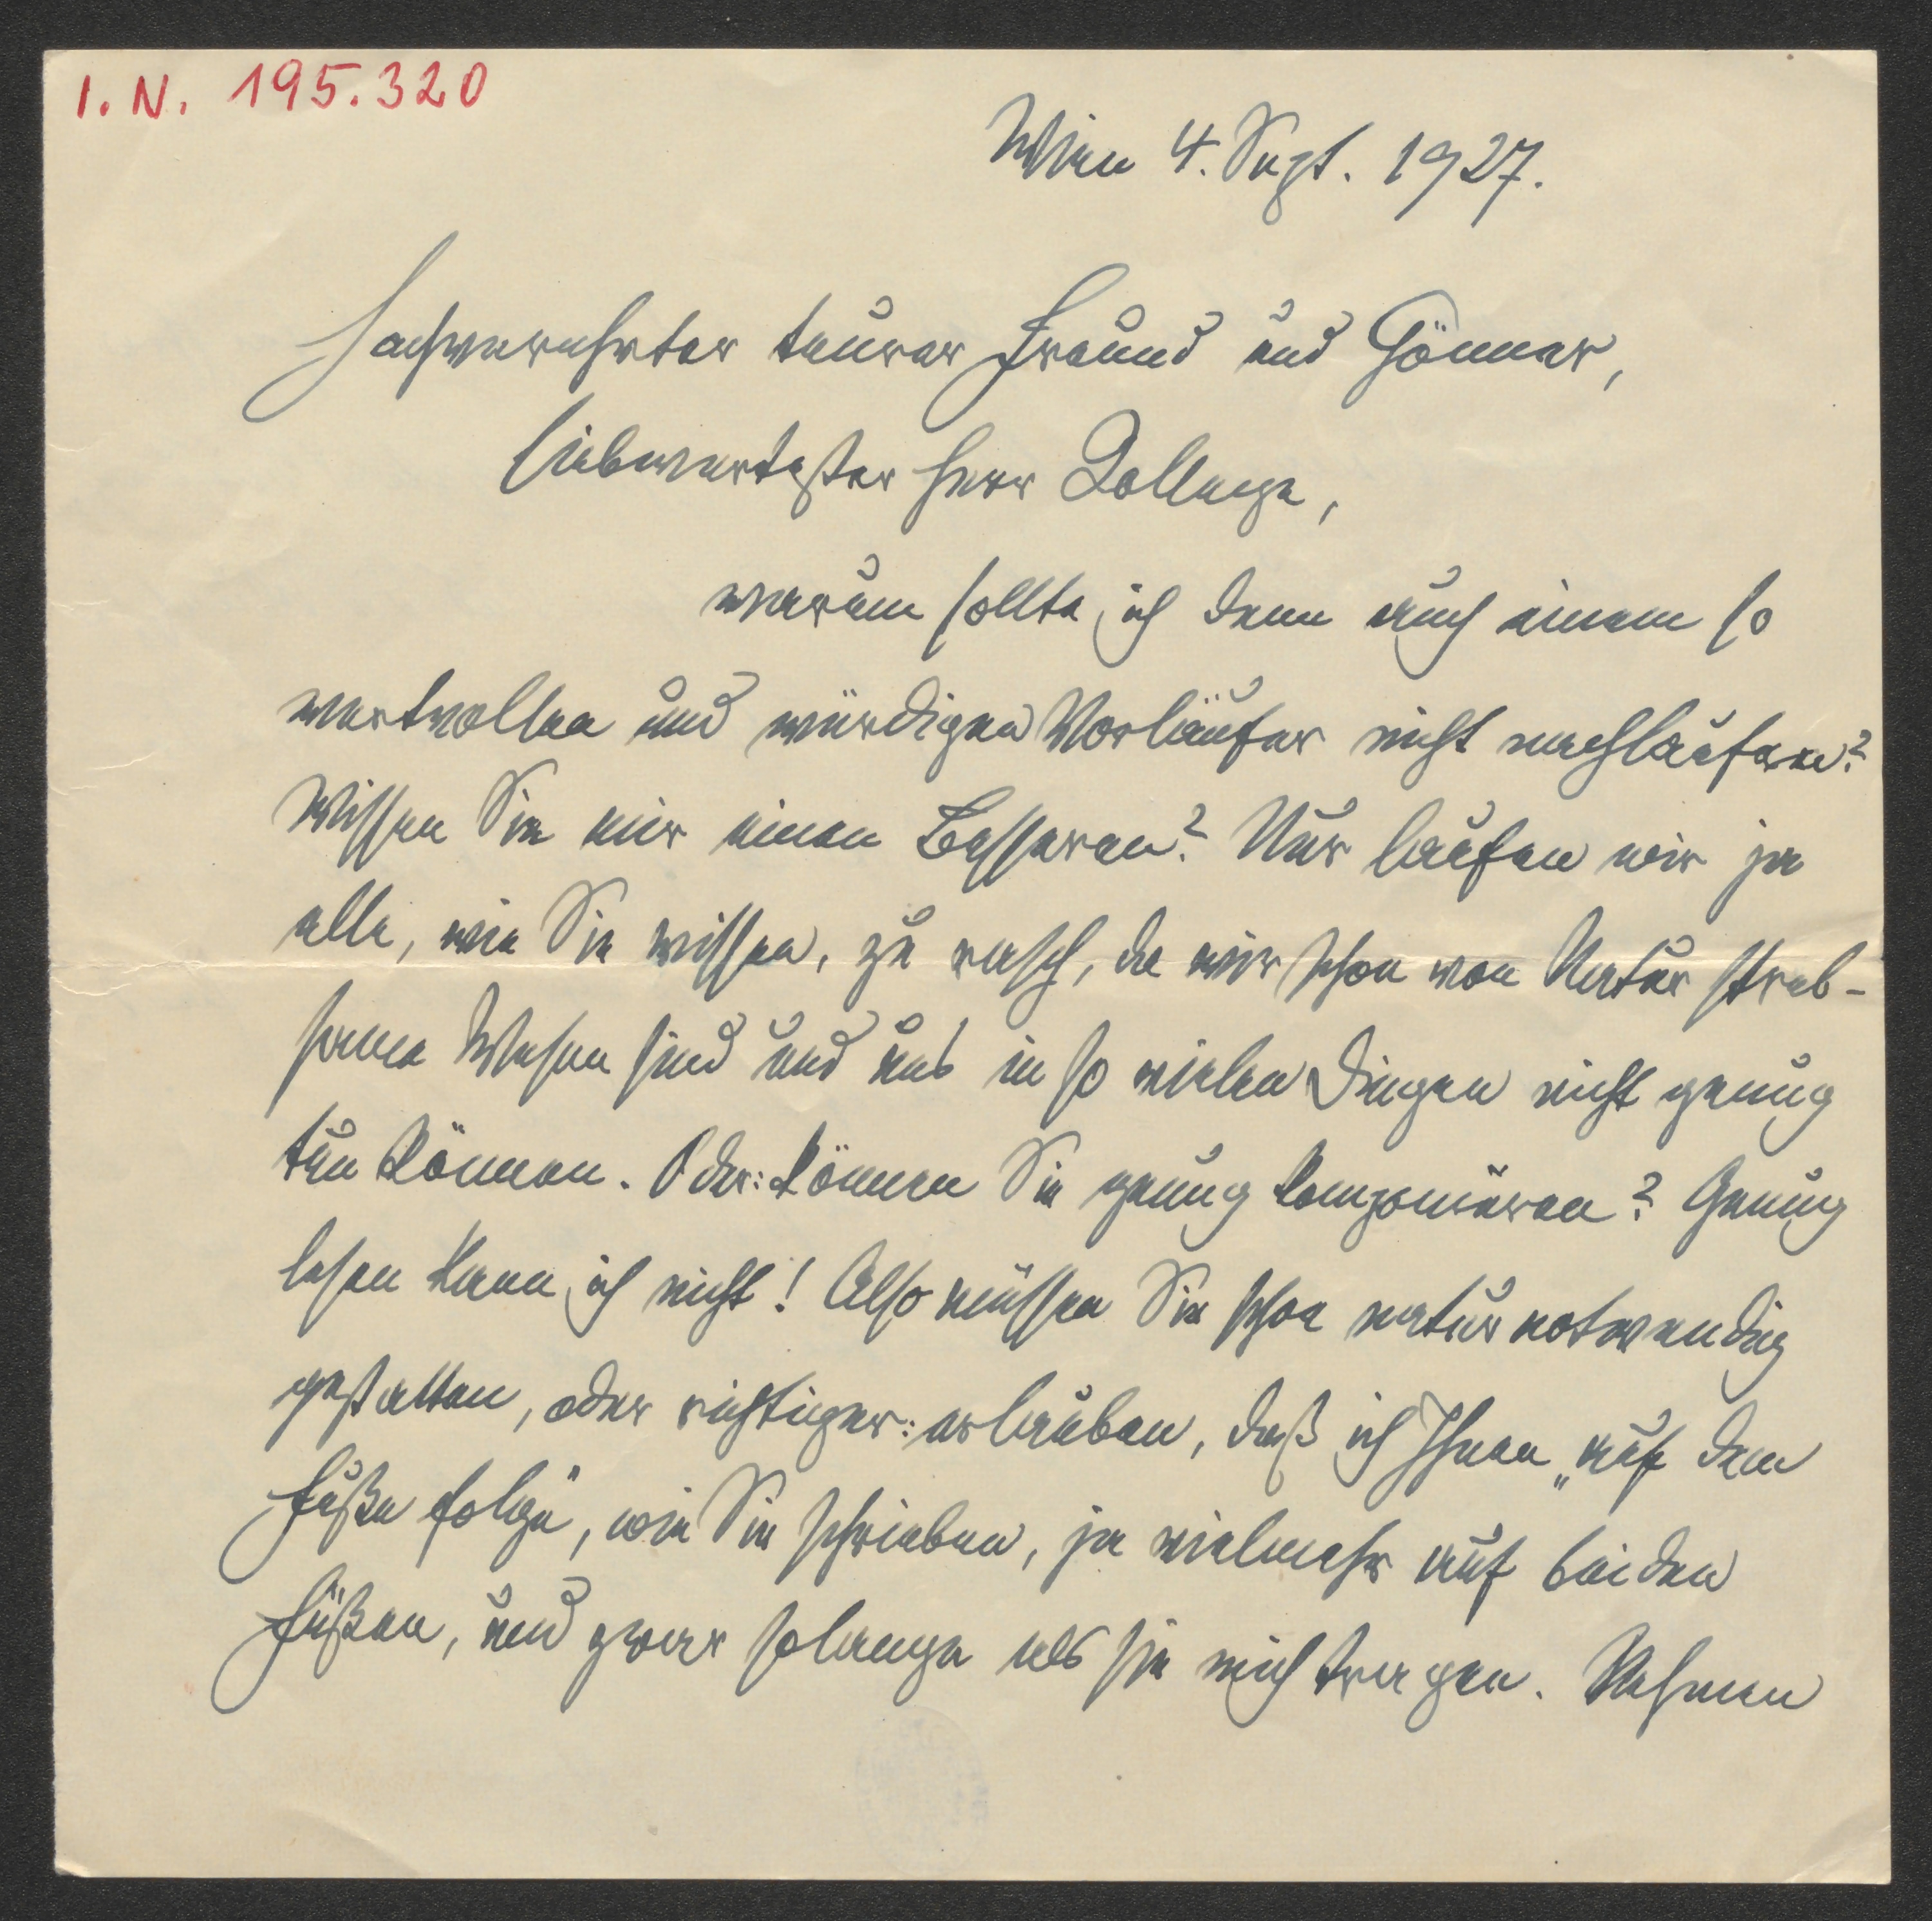 I. N. 195.320
Wien 4. Sept. 1927.
Hochverehrter teurer Freund und Gönner,
liebwertester Herr Kollege,
warum sollte ich denn auch einem so
wertvollen und würdigen Vorläufer nicht nachlaufen?
Wissen Sie mir einen Besseren? Nur laufen wir ja
alle, wie Sie wissen, zu rasch, da wir schon von Natur streb-
same Wesen sind und uns in so vielen Dingen nicht genug
tun können. Oder: können Sie genug komponieren? Genug
lesen kann ich nicht! Also müssen Sie schon naturnotwendig
gestatten, oder richtiger: erlauben, daß ich Ihnen „auf dem
Fuße folge", wie Sie schrieben, ja vielmehr auf beiden
Füßen, und zwar solange als sie mich tragen. Nehmen